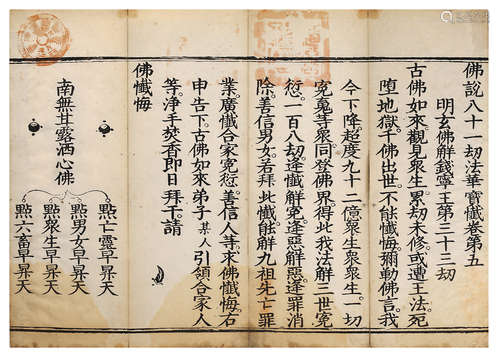 佛說八十一劫法華寶懺卷第五
明玄佛解錢寧王第三十三劫
古佛如來觀見眾生累劫未修或遭王法死
墮地獄千佛出世不能懺悔彌勒佛言我
今下降超度九十二億眾生眾生一切
冤冤等眾同登佛界得此我法解三世冤
愆一百八劫逢懺解冤逢惡解惡逢罪消
除善信男女若拜此懺能解九祖先亡罪
業廣懺合家冤愆善信人等求佛懺悔石
申告下古佛如來弟子某人引領合家人
等淨手焚香即日拜干請
佛懺悔
南無甘露洒心佛
點亡靈早昇天
點男女早昇天
點眾生早昇天
點六畜早昇天